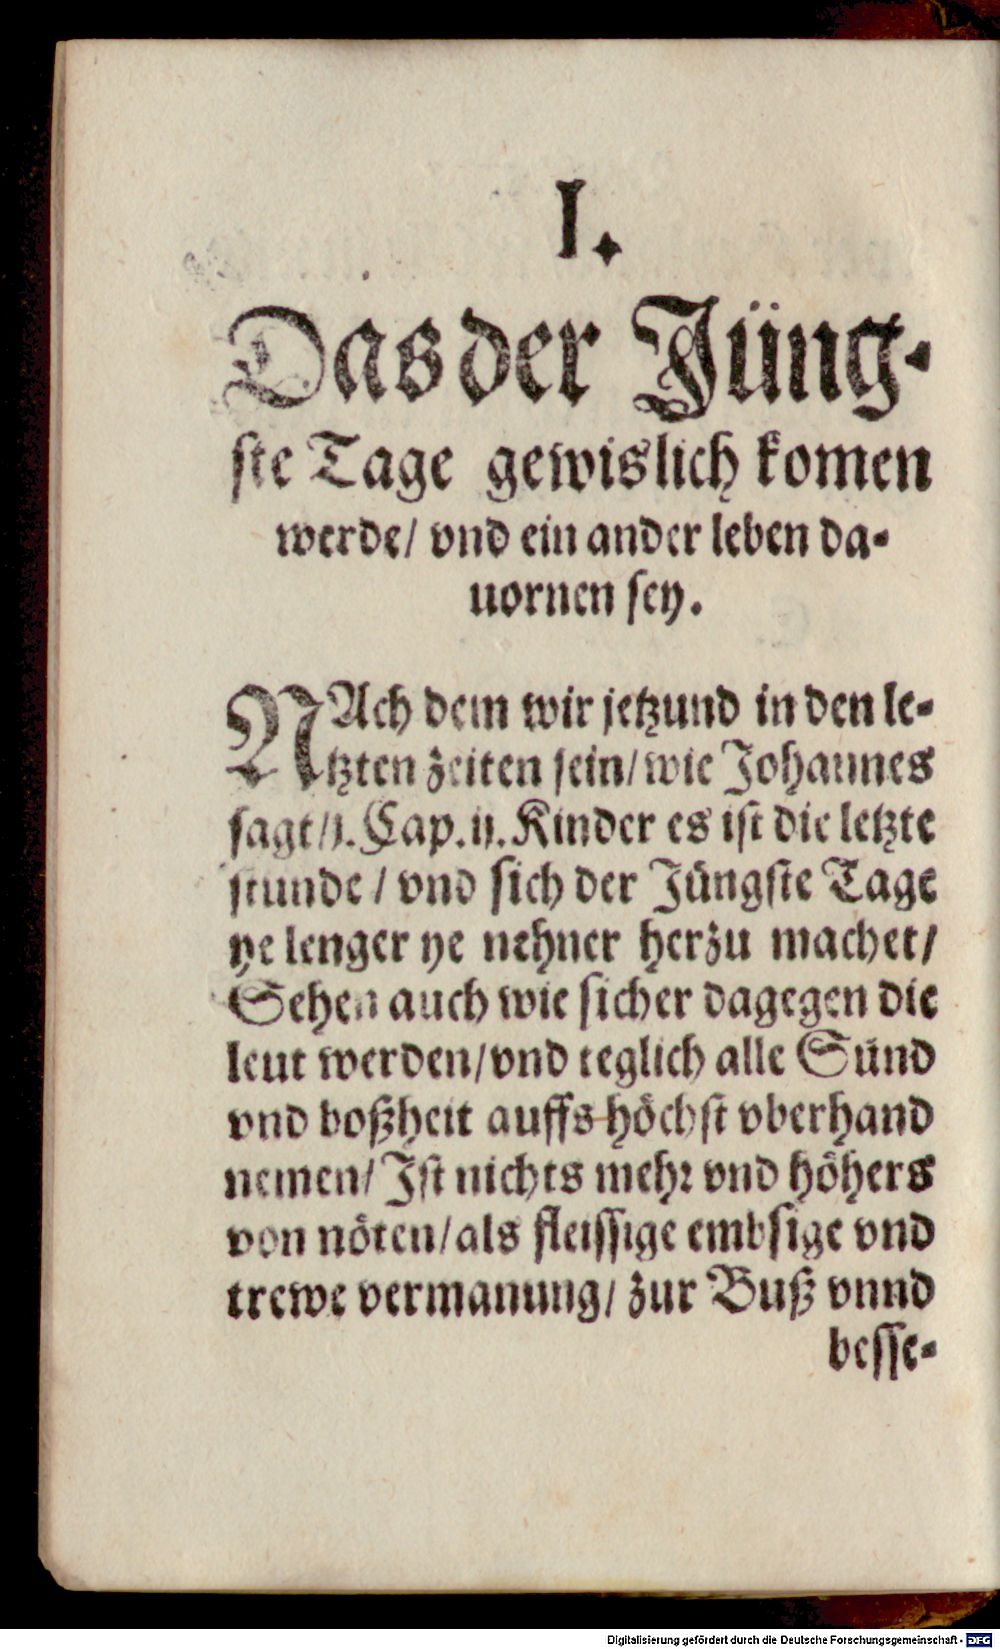 I.
Das der Jüng-
ste Tage gewislich komen
werde/ vnd ein ander leben da-
uornen sey.
NAch dem wir jetzund in den le-
tzten zeiten sein/ wie Johannes
sagt/j. Cap. ij. Kinder es ist die letzte
stunde / vnd sich der Jüngste Tage
ye lenger ye nehner herzu machet/
Sehen auch wie sicher dagegen die
leut werden/vnd teglich alle Sünd
vnd boßheit auffs höchst vberhand
nemen/ Ist nichts mehr vnd höhers
von nöten/als fleissige embsige vnd
trewe vermanung/ zur Buß vnnd
besse-
Digitalisierung gefördert durch die Deutsche Forschungsgemeinschaft - DFG